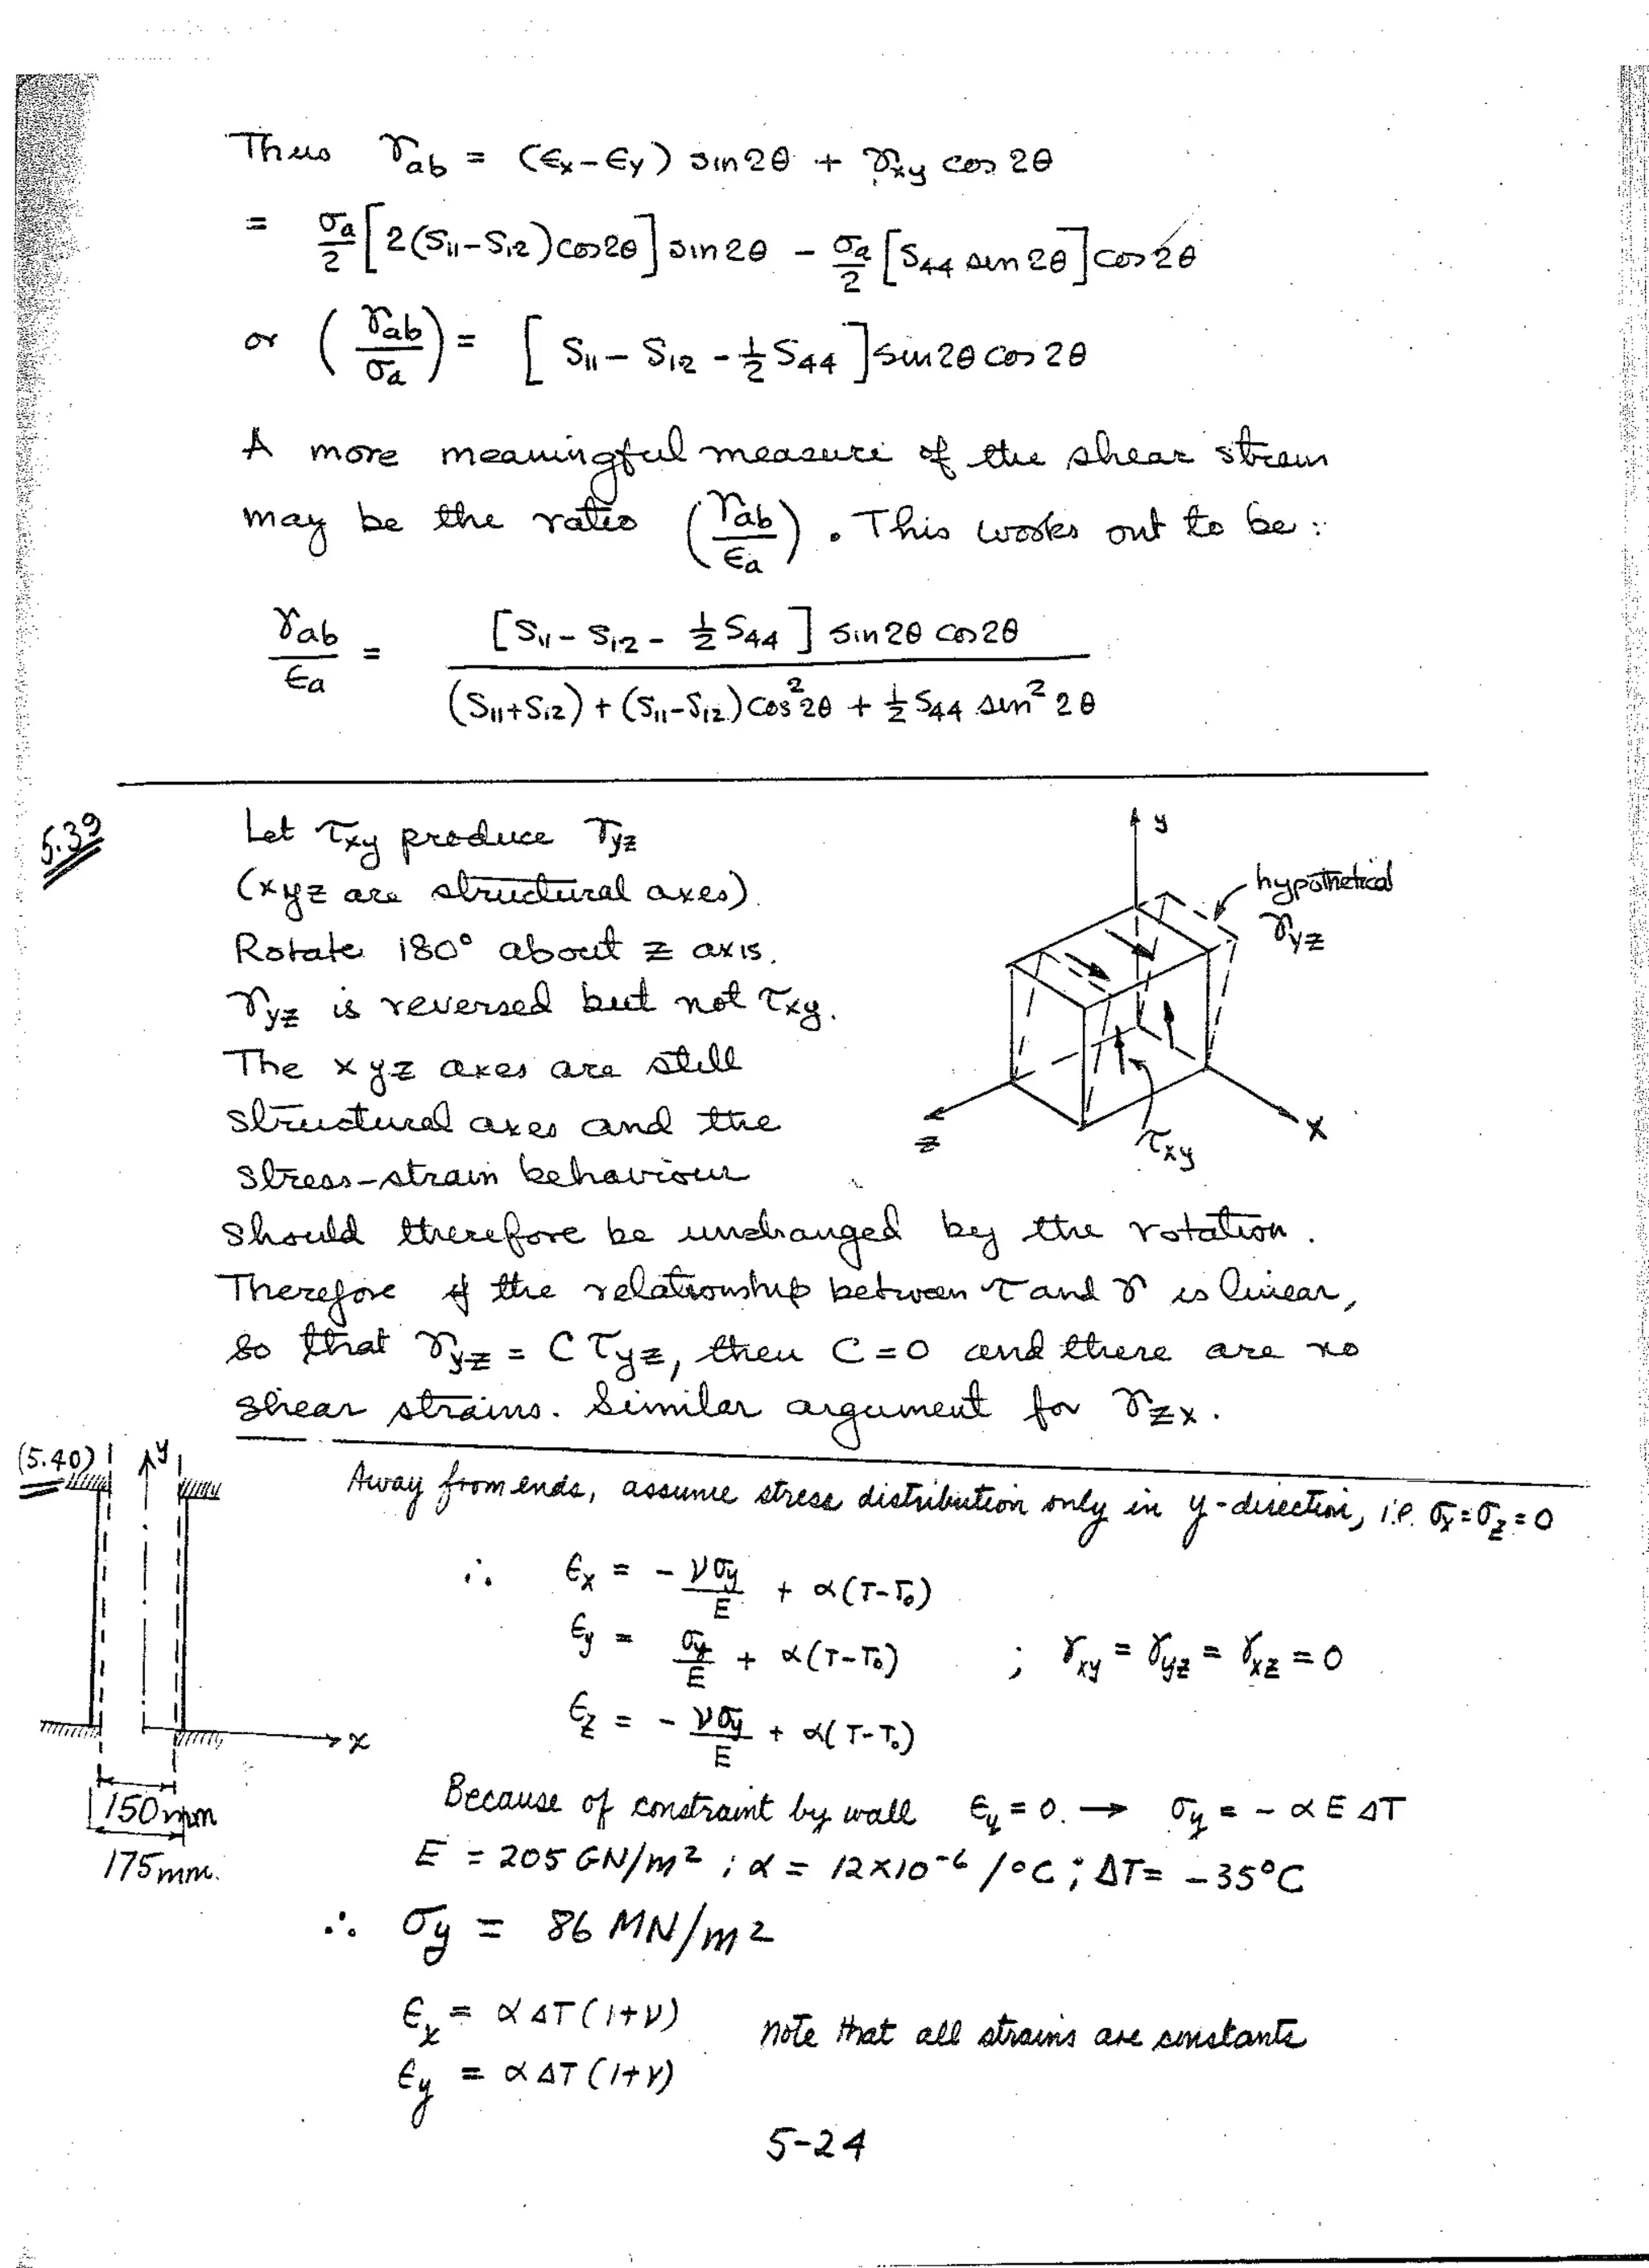 Thus γab = (Єx - Єy) sin2θ + γxy cos 2θ
= σa/2 [2(S11-S12)cos2θ] sin2θ - σa/2 [S44 sin 2θ] cos 2θ
or (γab/σa) = [S11 - S12 - ½ S44] sin2θ cos 2θ
A more meaningful measure of the shear strain
may be the ratio (γab/Єa). This works out to be:
γab/Єa = [S11 - S12 - ½ S44] sin2θ cos2θ / (S11+S12) + (S11-S12) cos²2θ + ½ S44 sin² 2θ
5.39
Let τxy produce τyz
(xyz are structural axes).
Rotate 180° about z axis.
γyz is reversed but not τxy.
The xyz axes are still
structural axes and the
stress-strain behaviour
should therefore be unchanged by the rotation.
Therefore if the relationship between τ and γ is linear,
so that γyz = C τyz, then C = 0 and there are no
shear strains. Similar argument for γzx.
y
hypothetical
γyz
z
x
τxy
(5.40)
y
x
150mm
175mm.
Away from ends, assume stress distribution only in y-direction, i.e. σx=σz=0
∴ Єx = - νσy/E + α(T-T₀)
Єy = σy/E + α(T-T₀) ; γxy = γyz = γxz = 0
Єz = - νσy/E + α(T-T₀)
Because of constraint by wall Єy = 0. → σy = - α E ΔT
E = 205 GN/m² ; α = 12×10⁻⁶ /°C ; ΔT = -35°C
∴ σy = 86 MN/m²
Єx = α ΔT (1+ν)
note that all strains are constants
Єy = α ΔT (1+ν)
5-24